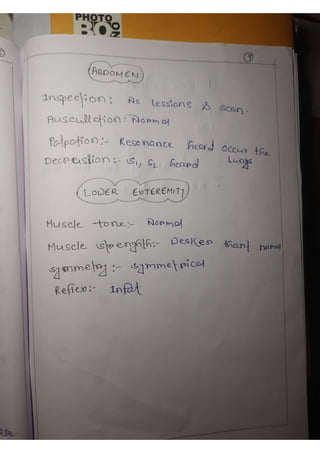 PHOTO
BO
ABDOMEN
Inspection: No lessions & scan.
Auscullation: Normal
Palpation:- Resonance heard occur the
Decpression:- S1, S2 heard Lungs
LOWER EXTEREMITY
Muscle tone:- Normal
Muscle strength:- Wesker thant normal
Symmetry:- Symmetrical
Reflex:- Intat